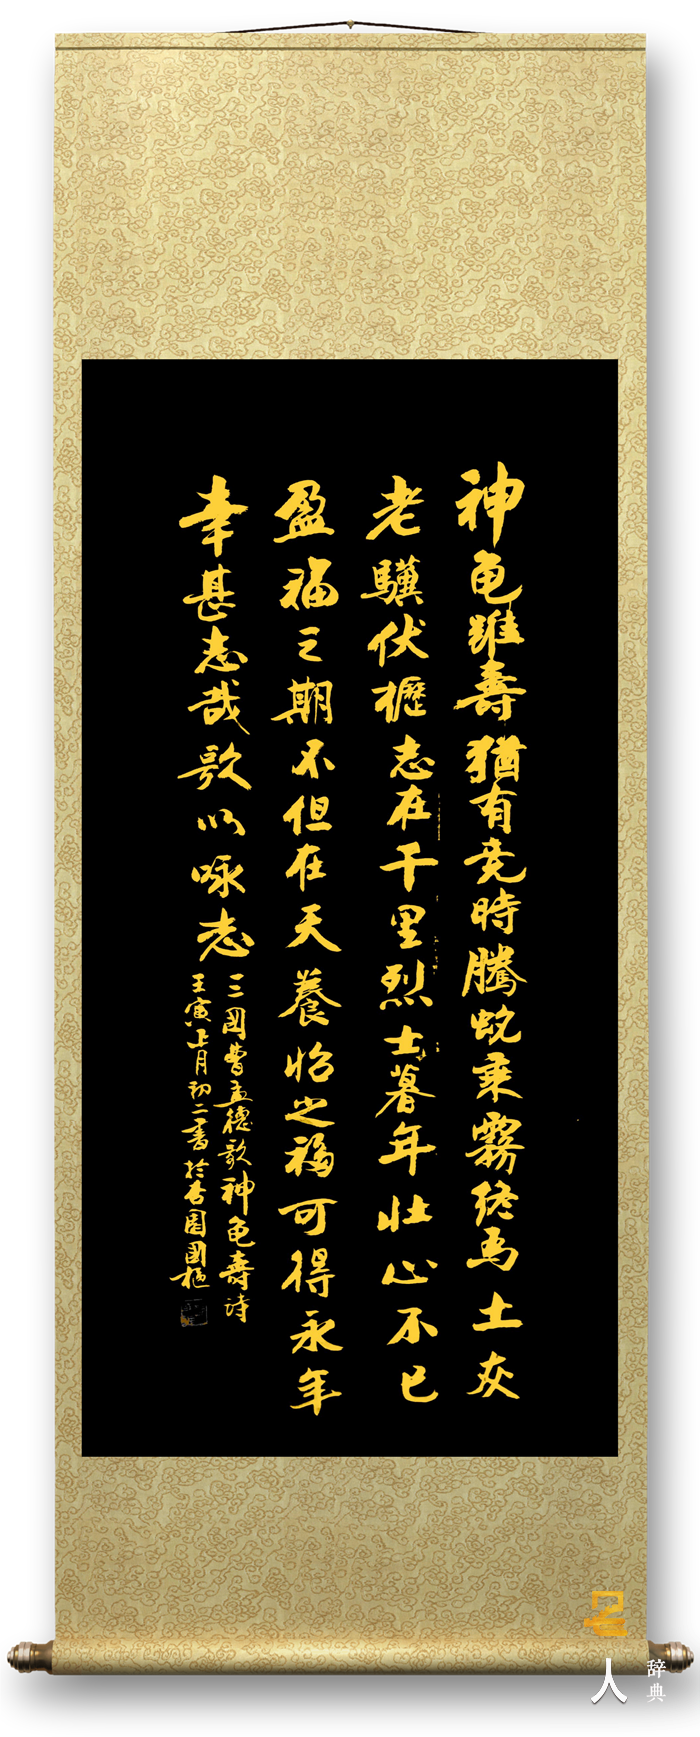 神龟雖壽猶有竞時騰蛇乘霧终為土灰
老驥伏櫪志在千里烈士暮年壮心不已
盈福之期不但在天養怡之福可得永年
幸甚志哉歌以咏志
三國曹孟德歌神龟壽诗
壬寅上月初二書於杏園國樞
名人
辞典